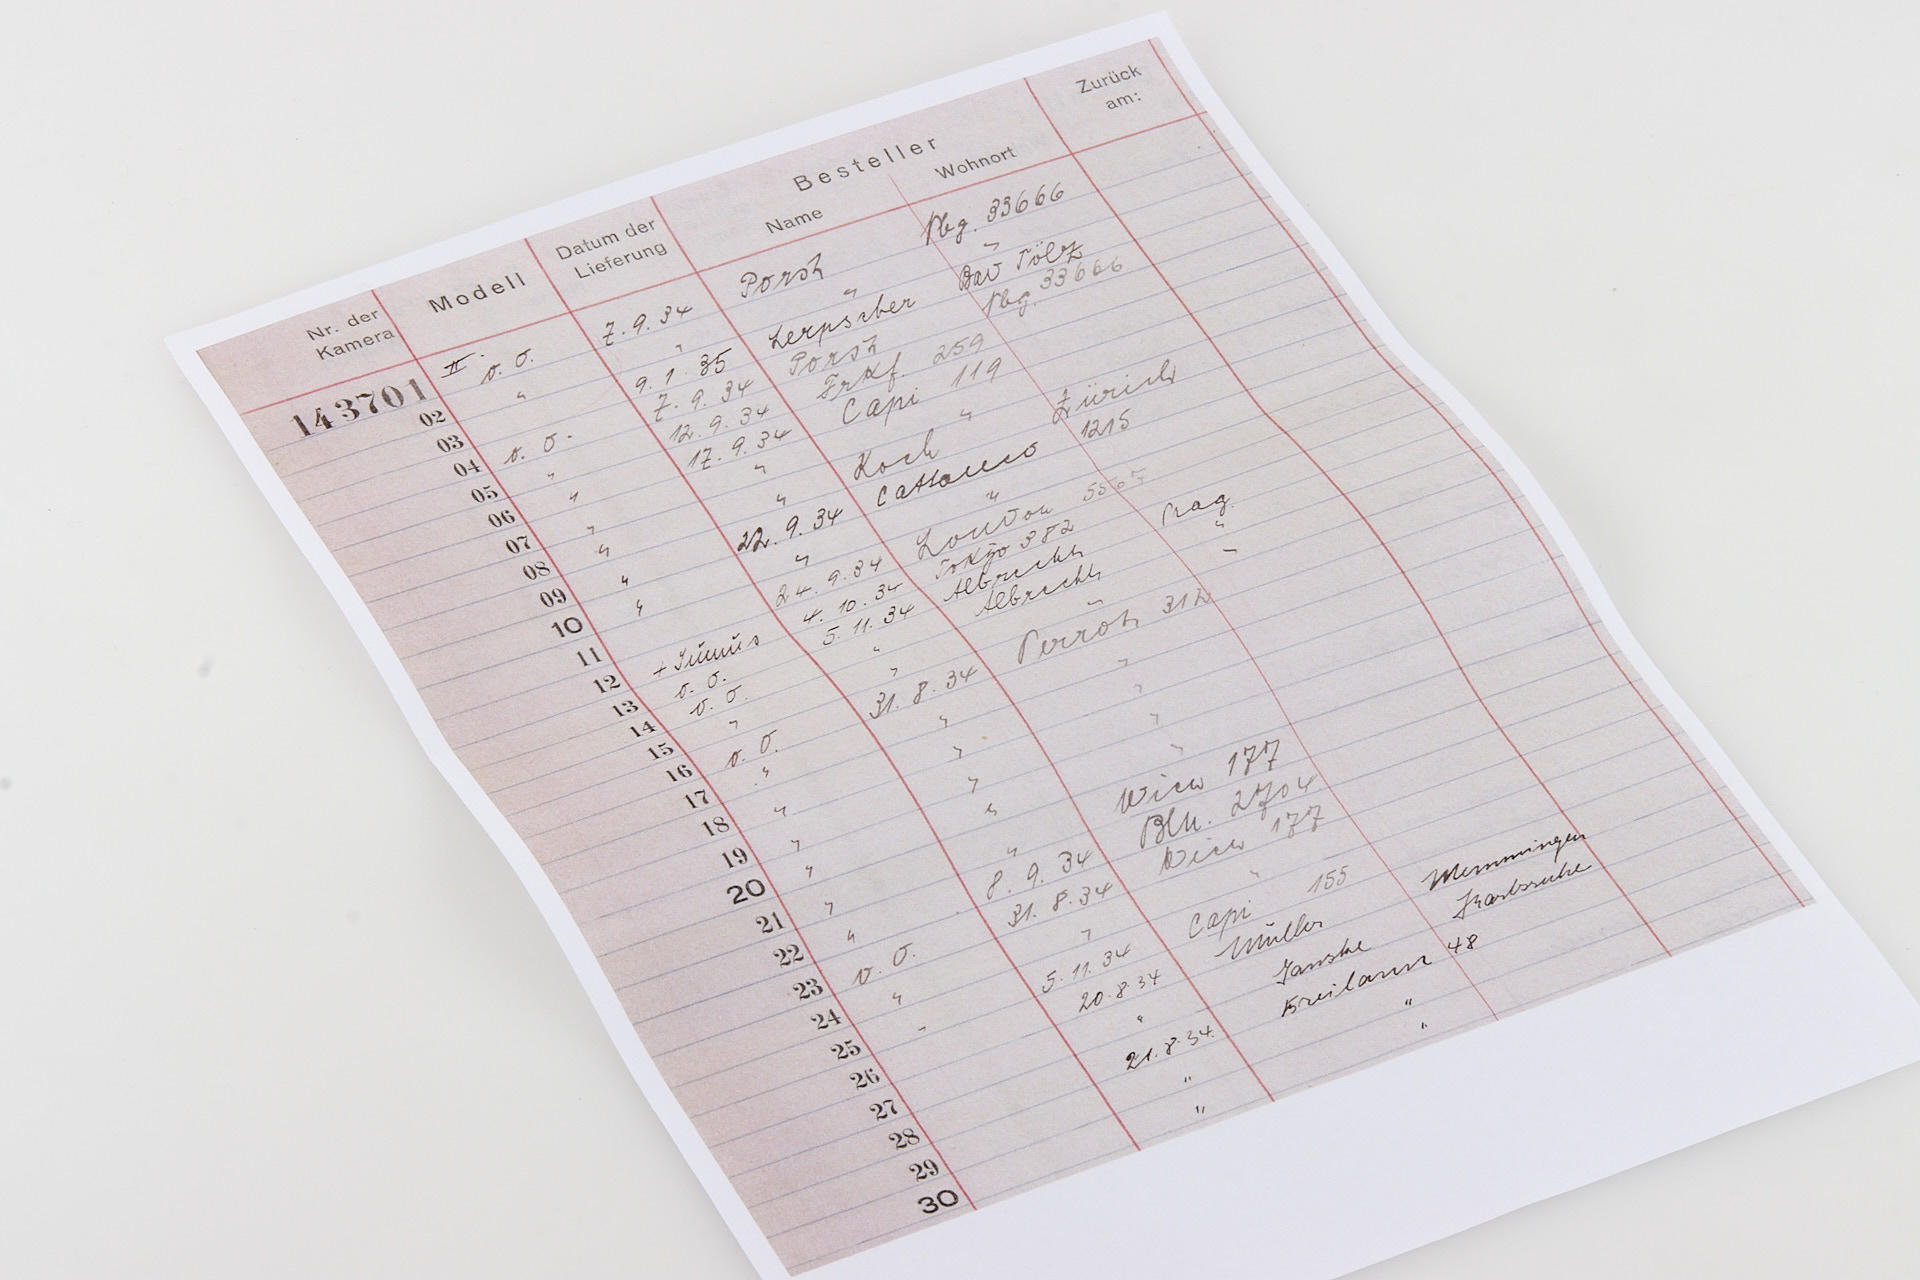 Besteller
Zurück am:
Nr. der Kamera Modell Datum der Lieferung Name Wohnort
143701 II o. O. 7. 9. 34 Porst Nbg. 33666
02 " " " "
03 9. 1. 35 Lerpscher Bad Tölz
04 o. O. 7. 9. 34 Porst Nbg. 33666
05 " 12. 9. 34 Frkf. 259
06 " 17. 9. 34 Capi 119
07 " " "
08 " " Koch Zürich
09 " 22. 9. 34 Cattaneo 1215
10 " " "
11 24. 9. 34 London
12 4. 10. 34 Tokyo 382
13 o. O. 5. 11. 34 Albrecht Prag
14 o. O. " Albrecht "
15 " " " "
16 o. O. 31. 8. 34 Perrot 312
17 " " "
18 " " "
19 " " "
20 " " "
21 " " Wien 177
22 " 8. 9. 34 Bln. 2704
23 o. O. 31. 8. 34 Wien 177
24 " " "
25 " 5. 11. 34 Capi 155
26 20. 8. 34 Müller Memmingen
27 " Janske Karlsruhe
28 21. 8. 34. 48
29 " "
30 " "